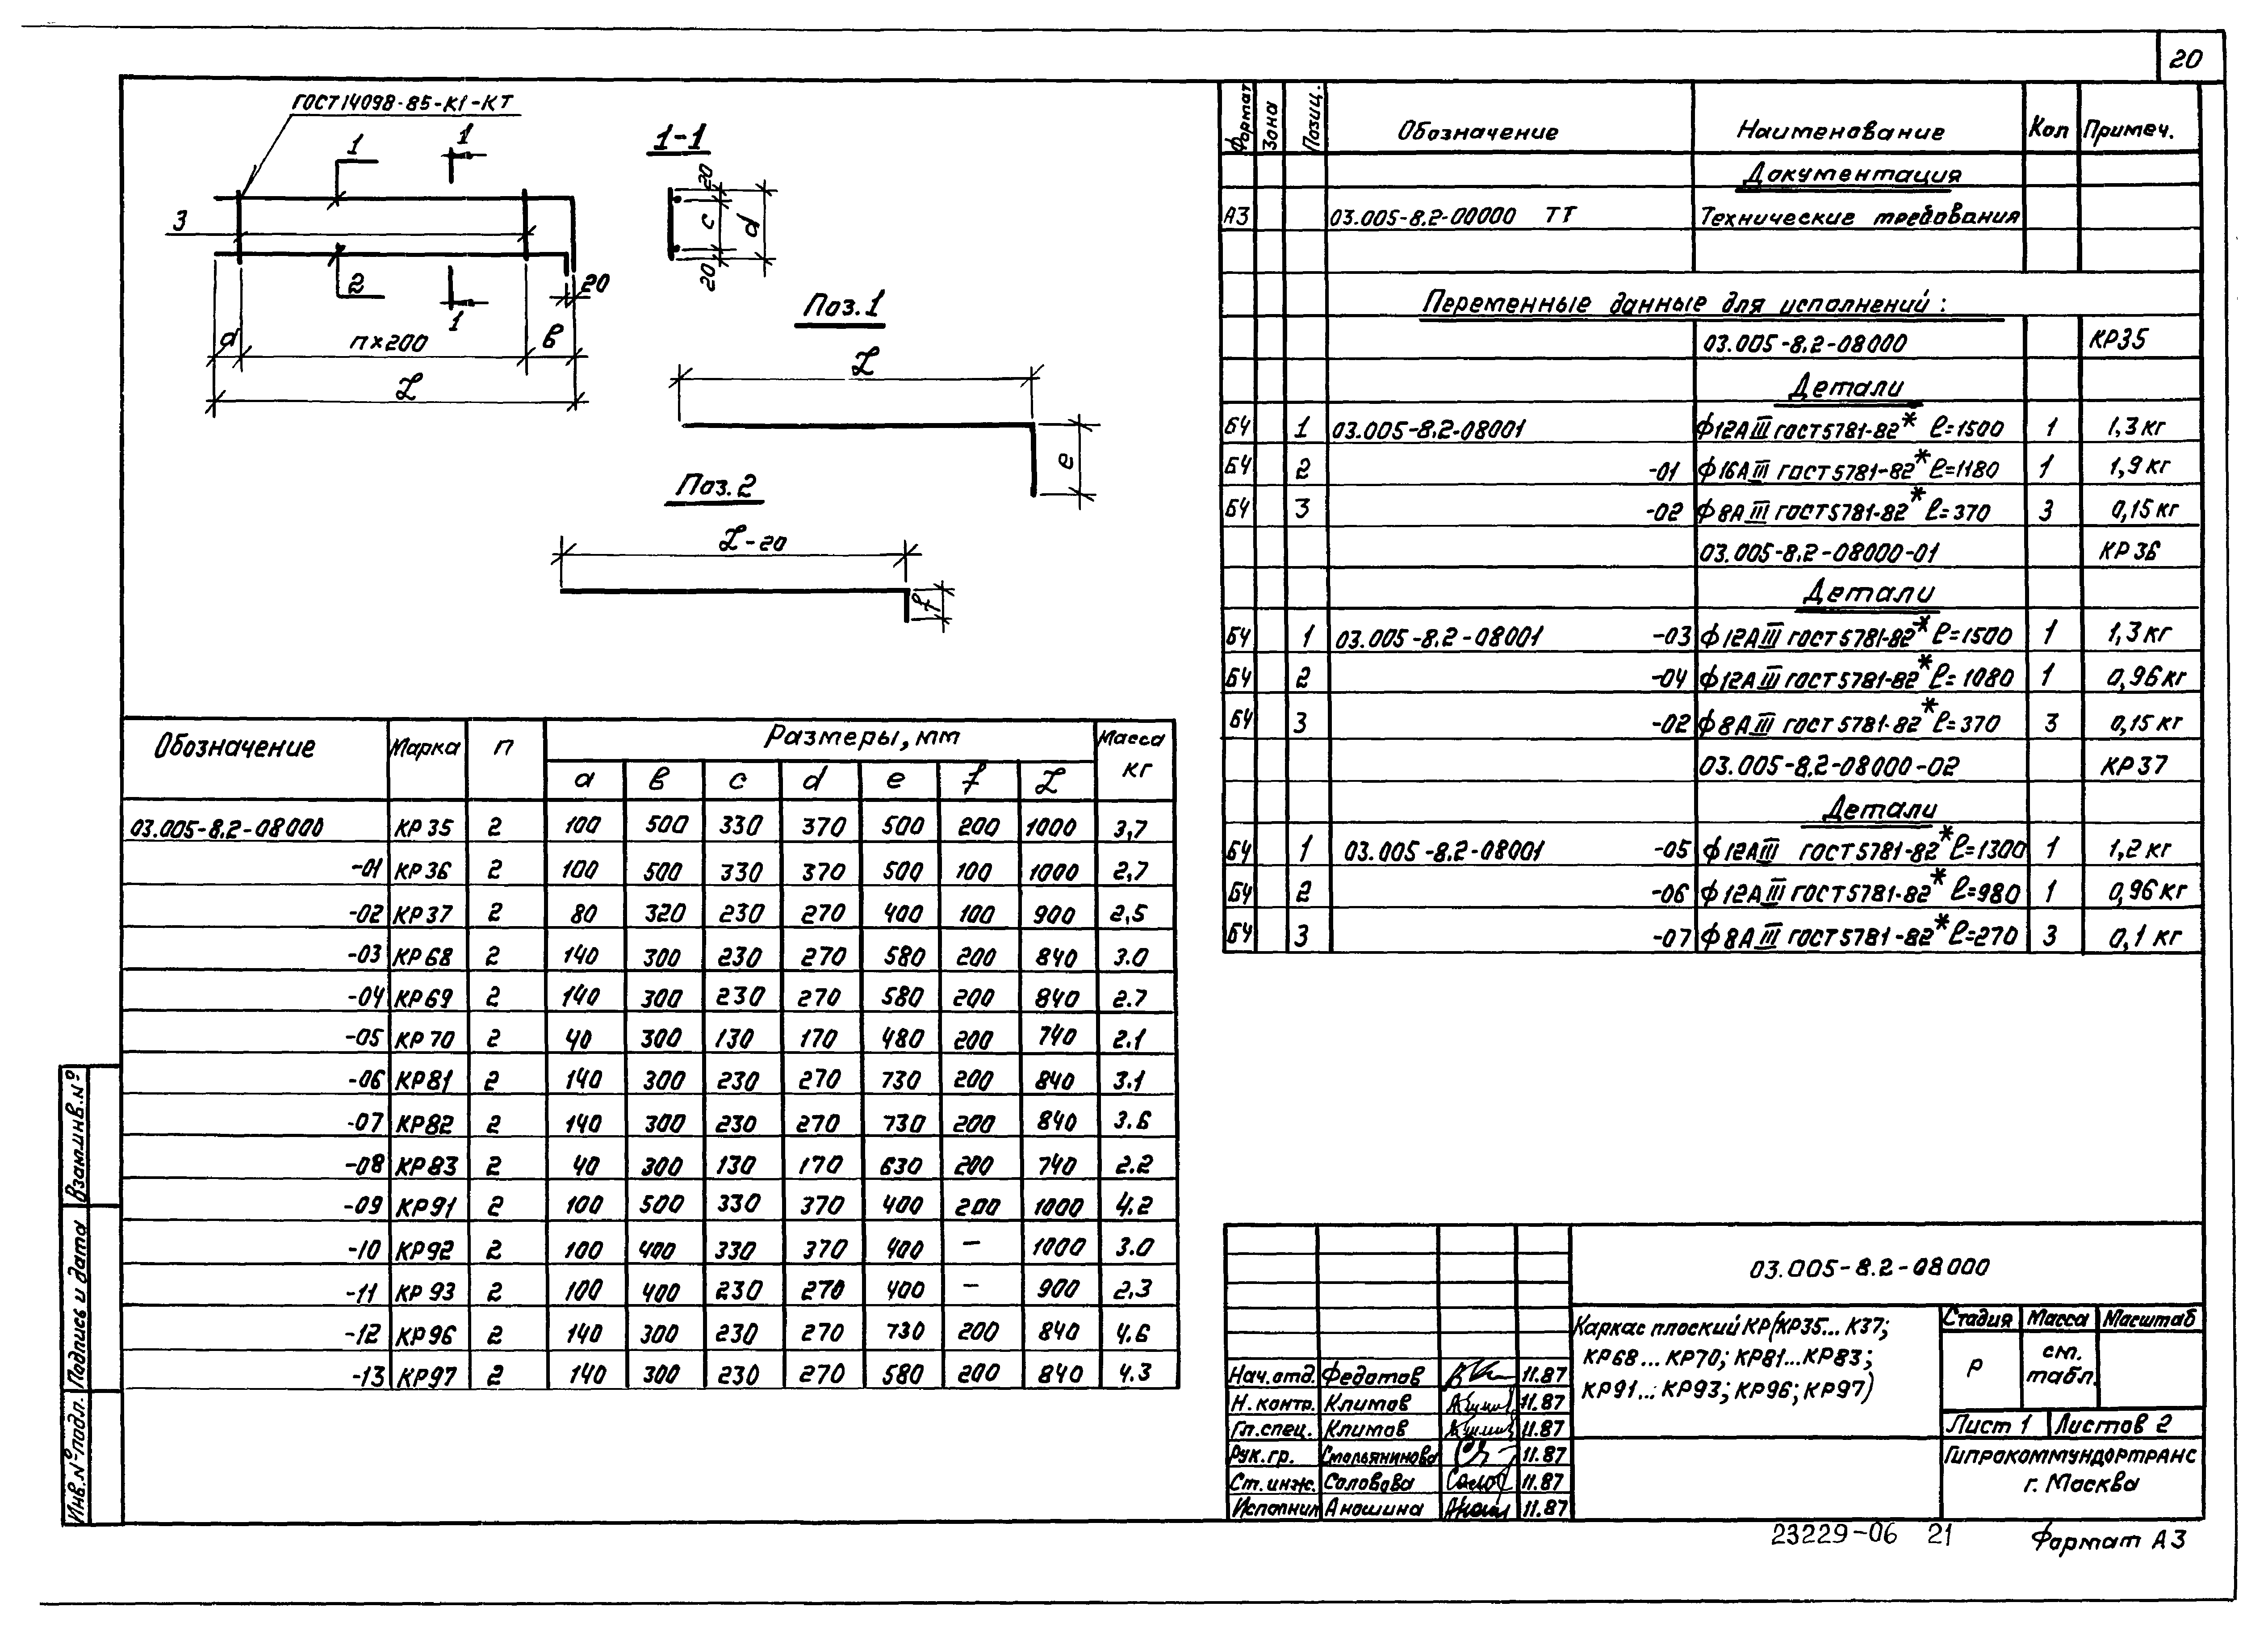 20
ГОСТ14098-85-К1-КТ
1 1
3
2
1
20
а п×200 в
L
1-1
20
с
20
d
Поз.1
L
е
Поз.2
L-20
f
Обозначение Марка п Размеры, мм Масса кг
а в с d е f L
03.005-8.2-08000 КР35 2 100 500 330 370 500 200 1000 3,7
-01 КР36 2 100 500 330 370 500 100 1000 2,7
-02 КР37 2 80 320 230 270 400 100 900 2,5
-03 КР68 2 140 300 230 270 580 200 840 3.0
-04 КР69 2 140 300 230 270 580 200 840 2.7
-05 КР70 2 40 300 130 170 480 200 740 2.1
-06 КР81 2 140 300 230 270 730 200 840 3.1
-07 КР82 2 140 300 230 270 730 200 840 3.6
-08 КР83 2 40 300 130 170 630 200 740 2.2
-09 КР91 2 100 500 330 370 400 200 1000 4.2
-10 КР92 2 100 400 330 370 400 — 1000 3.0
-11 КР93 2 100 400 230 270 400 — 900 2,3
-12 КР96 2 140 300 230 270 730 200 840 4.6
-13 КР97 2 140 300 230 270 580 200 840 4.3
Формат Зона Позиц. Обозначение Наименование Кол Примеч.
Документация
А3 03.005-8.2-00000 ТТ Технические требования
Переменные данные для исполнений:
03.005-8.2-08000 КР35
Детали
БЧ 1 03.005-8.2-08001 ф12АIII ГОСТ5781-82* ℓ=1500 1 1,3кг
БЧ 2 -01 ф16АIII ГОСТ5781-82* ℓ=1180 1 1,9кг
БЧ 3 -02 ф8АIII ГОСТ5781-82* ℓ=370 3 0,15кг
03.005-8.2-08000-01 КР36
Детали
БЧ 1 03.005-8.2-08001 -03 ф12АIII ГОСТ5781-82* ℓ=1500 1 1,3кг
БЧ 2 -04 ф12АIII ГОСТ5781-82* ℓ=1080 1 0,96кг
БЧ 3 -02 ф8АIII ГОСТ5781-82* ℓ=370 3 0,15кг
03.005-8.2-08000-02 КР37
Детали
БЧ 1 03.005-8.2-08001 -05 ф12АIII ГОСТ5781-82* ℓ=1300 1 1,2кг
БЧ 2 -06 ф12АIII ГОСТ5781-82* ℓ=980 1 0,96кг
БЧ 3 -07 ф8АIII ГОСТ5781-82* ℓ=270 3 0,1кг
03.005-8.2-08000
Каркас плоский КР(КР35...К37;
КР68...КР70; КР81...КР83;
КР91...КР93; КР96; КР97)
Стадия Масса Масштаб
Р см. табл.
Лист 1 Листов 2
Гипрокоммундортранс
г. Москва
Нач.отд. Федотов 11.87
Н.контр. Климов 11.87
Гл.спец. Климов 11.87
Рук.гр. Смольянинова 11.87
Ст.инж. Соловова 11.87
Исполнил Аношина 11.87
Взам.инв.№
Подпись и дата
Инв.№подл.
23229-06 21
Формат А3